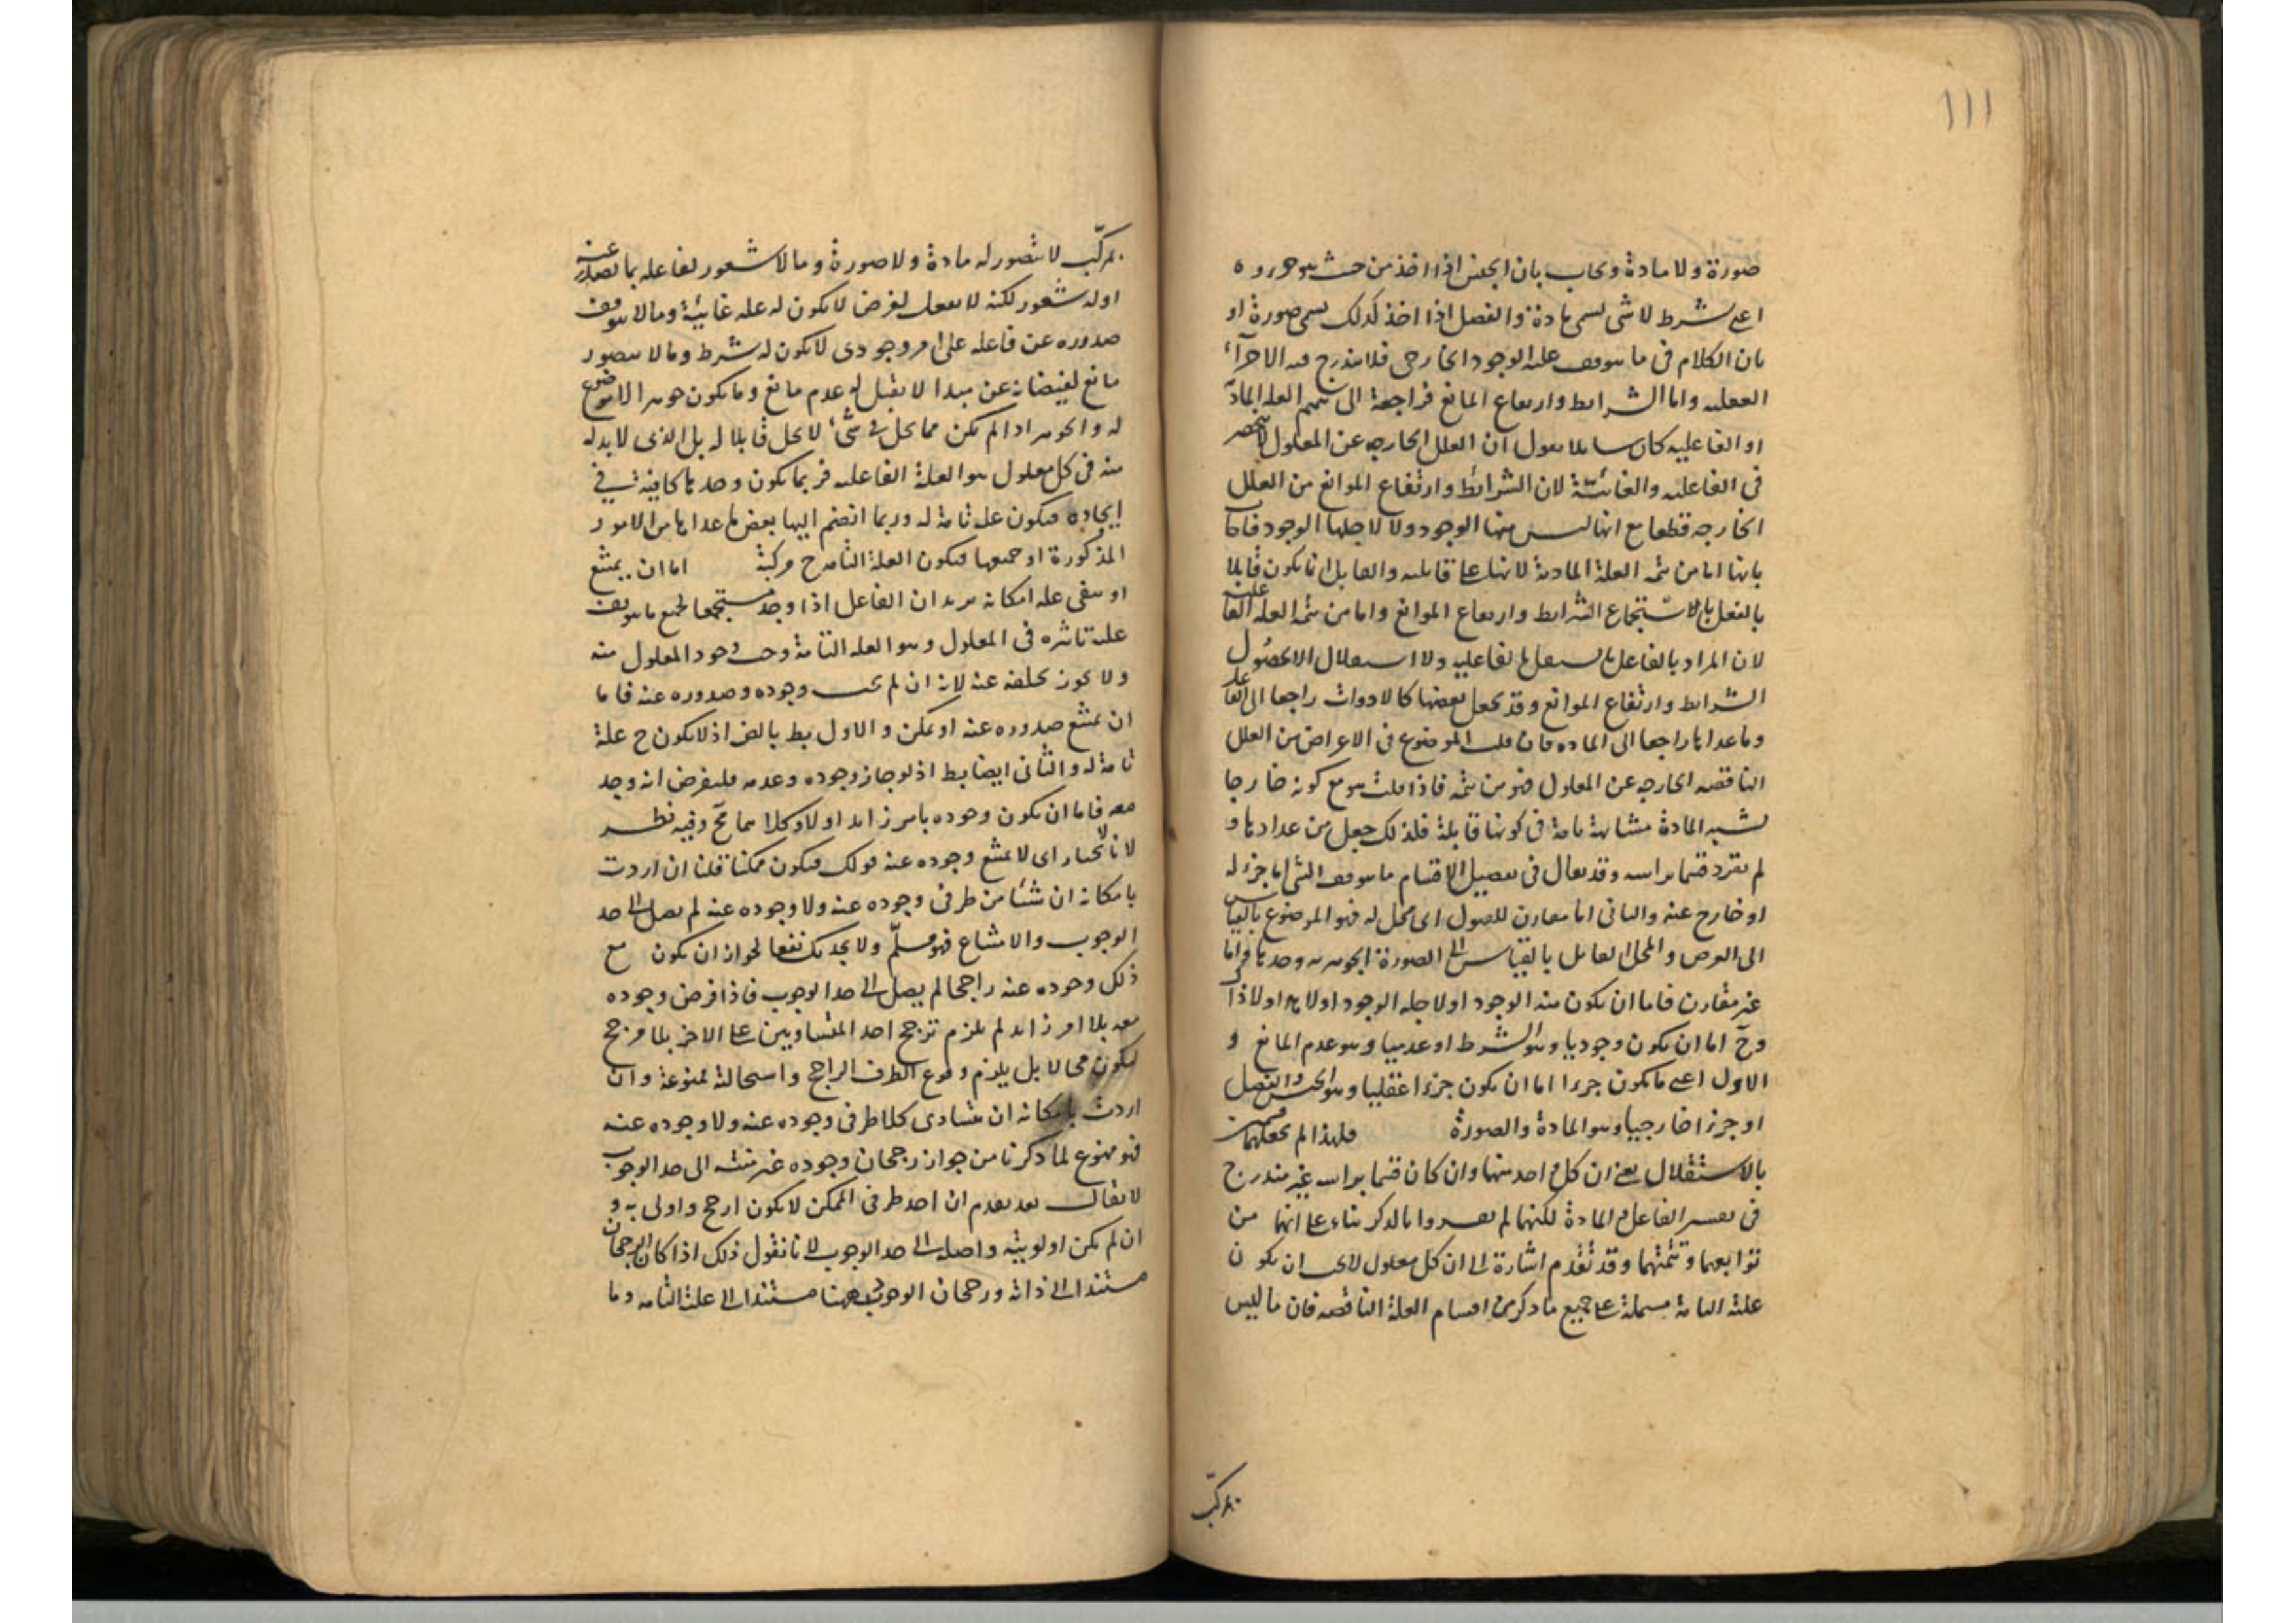 ١١١
صورة ولا مادة وىحاب بان الجنس اذا اخذ من حىث هو جزوه
اعنى بشرط لا شى ىسمى مادة والفصل اذا اخذ كذلك ىسمى صورة او
بان الكلام فى ما ىىوقف علىه الوجود الخارجى فلا ىندرج فىه الاجزآء
العقلىه واما الشرائط وارىفاع المانع فراجعة الى ىىمىم العله المادىة
او الفاعلىه كان ساىلا ىقول ان العلل الخارجه عن المعلول لا تنحصر
فى الفاعلىه والغائىة لان الشرائط وارتفاع الموانع من العلل
الخارجه قطعا مع انها لىس منها الوجود ولا لاجلها الوجود فاجاب
بانها اما من ىتمه العلة المادىة لانها علة قابلىه والقابل انما ىكون قابلا
بالفعل باستجماع الشرائط وارىفاع الموانع واما من ىتمة العلة الفاعلىة
لان المراد بالفاعل ما ىستقل بالفاعلىه ولا استقلال الا بحصول
الشرائط وارتفاع الموانع وقد ىجعل بعضها كالادوات راجعا الى الفاعل
وما عداها راجعا الى الماده فان قلت الموضوع فى الاعراض من العلل
الناقصه الخارجه عن المعلول فهو من ىتمة فاذا قلت هو مع كونه خارجا
ىشبه المادة مشابهة تامة فى كونها قابلة فلذلك جعل من عدادها و
لم ىفرد قسما براسه وقد ىقال فى ىفصىل الاقسام ما ىىوقف علىه الشى اما جزء له
او خارج عنه والثانى اما مقارن للمعلول اى محل له فهو الموضوع بالقىاس
الى العرض والمحل القابل بالقىاس الى الصورة الجوهرىه وحدها واما
غىر مقارن فاما ان ىكون منه الوجود او لاجله الوجود او لا هذا ولا ذاك
وح اما ان ىكون وجودىا وهو الشرط او عدمىا وهو عدم المانع و
الاول اعنى ما ىكون جزءا اما ان ىكون جزءا عقلىا وهو الجنس والفصل
او جزءا خارجىا وهو المادة والصورة فلهذا لم ىجعلهما قسمىن
بالاستقلال ىعنى ان كل واحد منهما وان كان قسما براسه غىر مندرج
فى ىفسىر الفاعل والمادة لكنهما لم ىفردوا بالذكر بناء على انهما من
توابعهما وتتمتهما وقد تقدم اشارة الى ان كل معلول لا ىجب ان ىكون
علته التامة مشتملة على جمىع ما ذكر من اقسام العلة الناقصه فان ما لىس
بمركب
بمركب لا ىتصور له مادة ولا صورة وما لا شعور لفاعله بما ىصدر عنه
او له شعور لكنه لا ىفعل لغرض لا ىكون له علة غائىة وما لا ىىوقف
صدوره عن فاعله على امر وجودى لا ىكون له شرط وما لا ىىصور
مانع لفىضانه عن مبدا لا ىقبل له عدم مانع وما ىكون جوهرا لا موضوع
له والجوهر اذا لم ىكن مما ىحل فى شىء لا محل قابلا له بل الذى لا بد له
منه فى كل معلول هو العلة الفاعلىه فربما ىكون وحدها كافىة فى
اىجاده فىكون علة تامة له وربما انضم الىها بعض ما عداها من الامور
المذكورة او جمىعها فىكون العلة التامة ح مركبة اما ان ىمتنع
او ىىقى علىه امكانه ىرىد ان الفاعل اذا وجد مستجمعا لجمىع ما ىىوقف
علىه تاثىره فى المعلول وهو العلة التامة وجب وجود المعلول منه
ولا ىجوز ىخلفه عنه لانه ان لم ىجب وجوده وصدوره عنه فاما
ان ىمتنع صدوره عنه او ىمكن والاول بط بالض اذ لا ىكون ح علة
تامة له والثانى اىضا بط اذ لو جاز وجوده وعدمه فلىفرض انه وجد
معه فاما ان ىكون وجوده بامر زاىد او لا وكلاهما مح وفىه نظر
لانا نختار اى لا ىمتنع وجوده عنه قولك فىكون ممكنا قلنا ان اردت
بامكانه ان شىئا من طرفى وجوده عنه ولا وجوده عنه لم ىصل الى حد
الوجوب والامتناع فهو مسلم ولا ىجدىك نفعا لجواز ان ىكون مع
ذلك وجوده عنه راجحا لم ىصل الى حد الوجوب فاذا فرض وجوده
معه بلا امر زاىد لم ىلزم ترجح احد المتساوىىن على الاخر بلا مرجح
لىكون محالا بل ىلزم وقوع الطرف الراجح واسىحالته ممنوعة وان
اردت بامكانه ان ىتساوى كلا طرفى وجوده عنه ولا وجوده عنه
فهو ممنوع لما ذكرنا من جواز رجحان وجوده غىر منته الى حد الوجوب
لا ىقال قد ىقدم ان احد طرفى الممكن لا ىكون ارجح واولى به و
ان لم ىكن اولوىته واصلة الى حد الوجوب لانا نقول ذلك اذا كان الرجحان
مستندا الى ذاته ورجحان الوجود ههنا مستند الى علته التامه وما